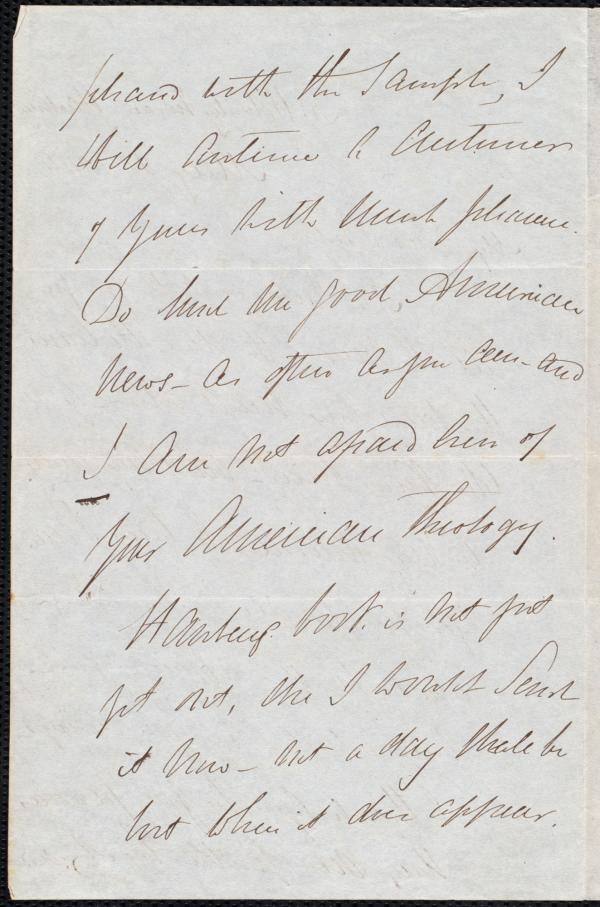 pleased with the Sample, I
will continue a Customer
of yours with much pleasure.
Do send me good American
News - as often as you can - and
I am not afraid even of
your American Theology.
book is not just
yet out, else I would send
it now - not a day shall be
lost when it does appear.